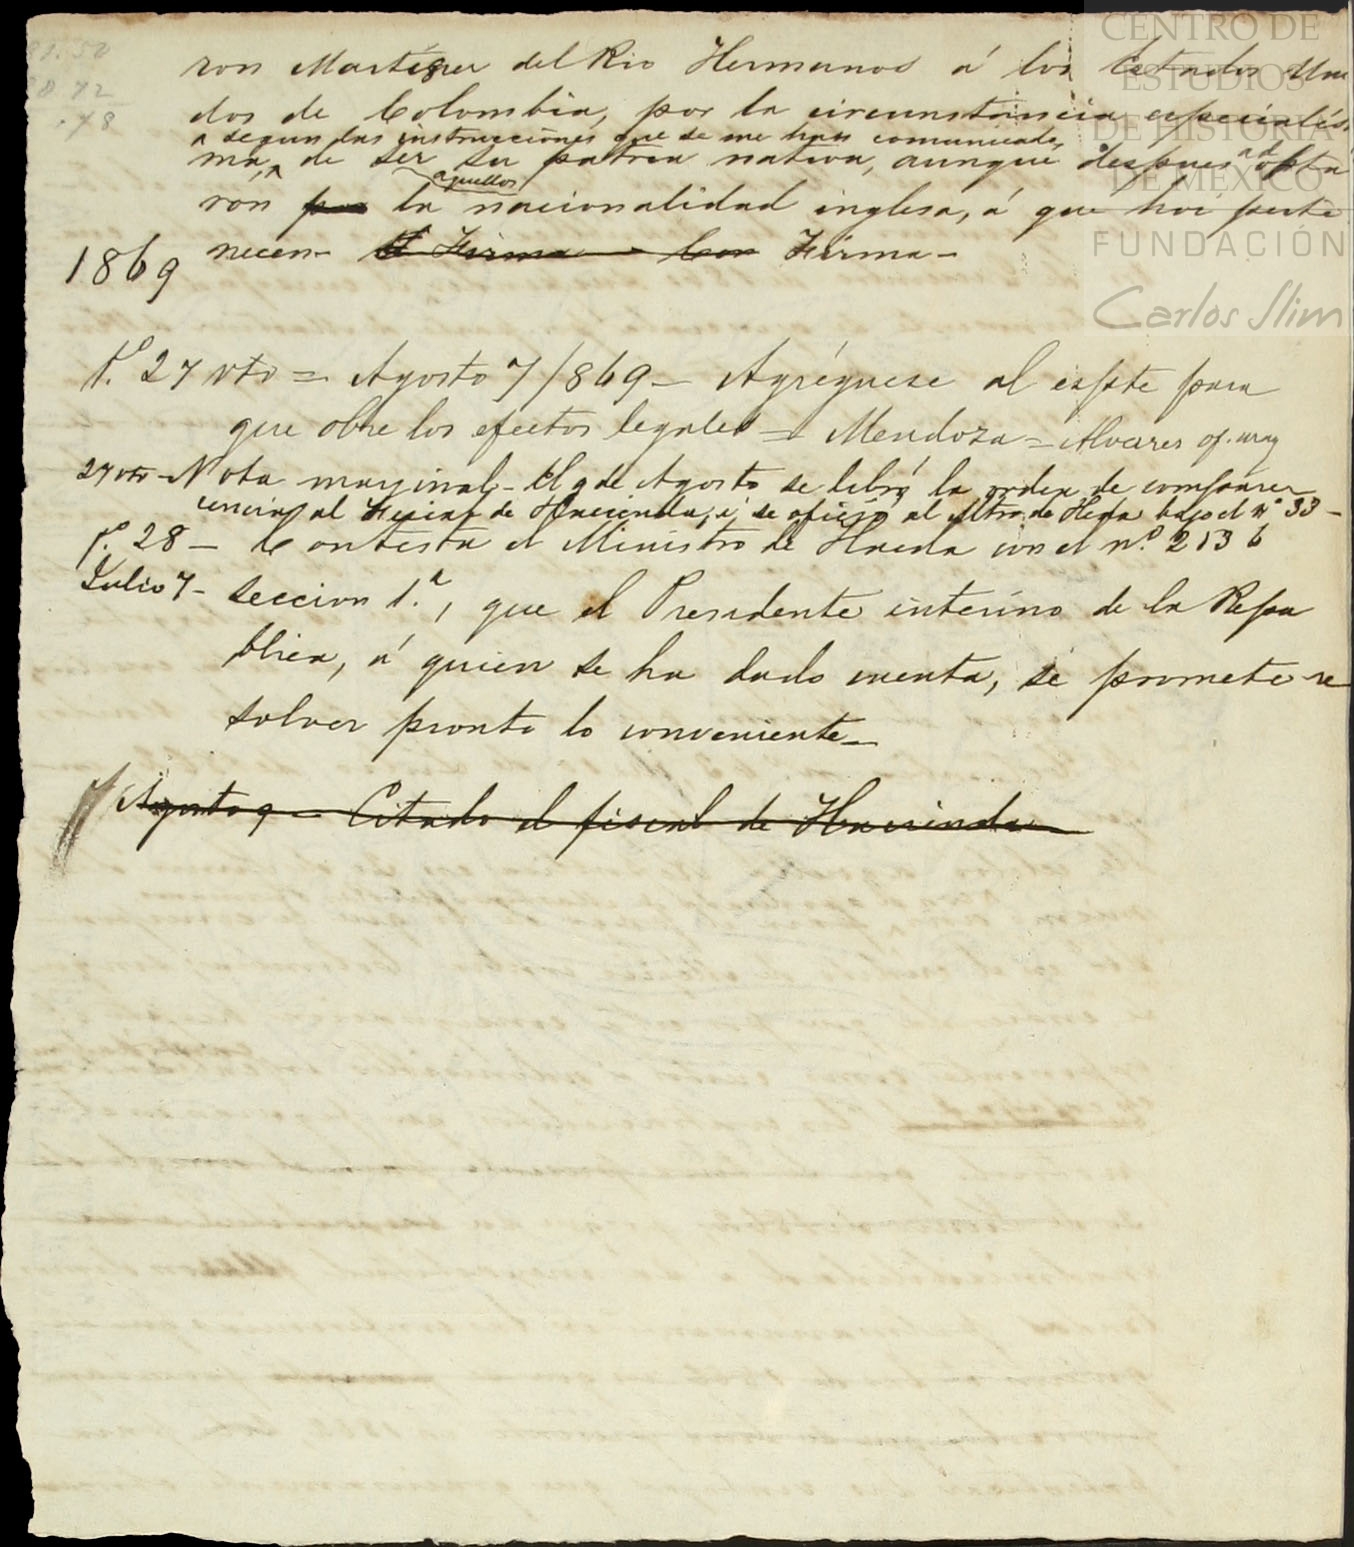 CENTRO DE
ESTUDIOS
DE HISTORIA
DE MÉXICO
FUNDACIÓN
Carlos Slim
ron Martínez del Rio Hermanos á los Estados Uni
dos de Colombia, por la circunstancia especialísi
a segun las instrucciones que se me han comunicado,
ma, de ser su patria nativa, aunque despues adopta
aquellos
ron por la nacionalidad inglesa, á que hoi perte
1869
necen- Firma - Con Firma-
f. 27 vto = Agosto 7/869 - Agréguese al espte para
que obre los efectos legales = Mendoza = Alvares of. may
27 vto - Nota marginal - El 9 de Agosto se libró la orden de comparer
cencia al Fiscal de Hacienda, i se ofició al Mtro de Hcda bajo el nº 33 -
f. 28 - Contesta el Ministro de Hacda con el nº 2136
Julio 7 - seccion 1.ª, que el Presidente interino de la Repu
blica, á quien se ha dado cuenta, se promete re
solver pronto lo conveniente -
Agosto 9 - Citado el fiscal de Hacienda -